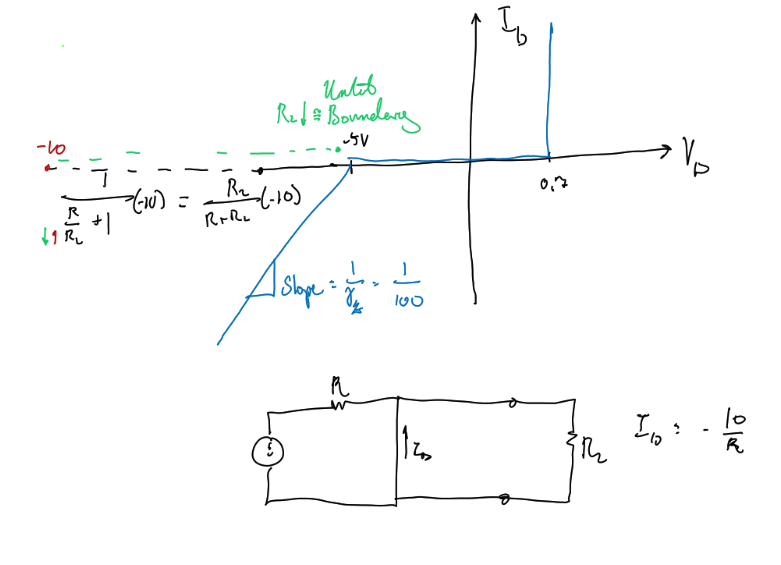 I_D
Until
R_L↓ ≅ Boundary
-5V
-10
V_D
0.7
1 / (R/R_L + 1) (-10) = R_L / (R+R_L) (-10)
Slope = 1/r_z = 1/100
R
I_D
R_L
I_D = - 10/R